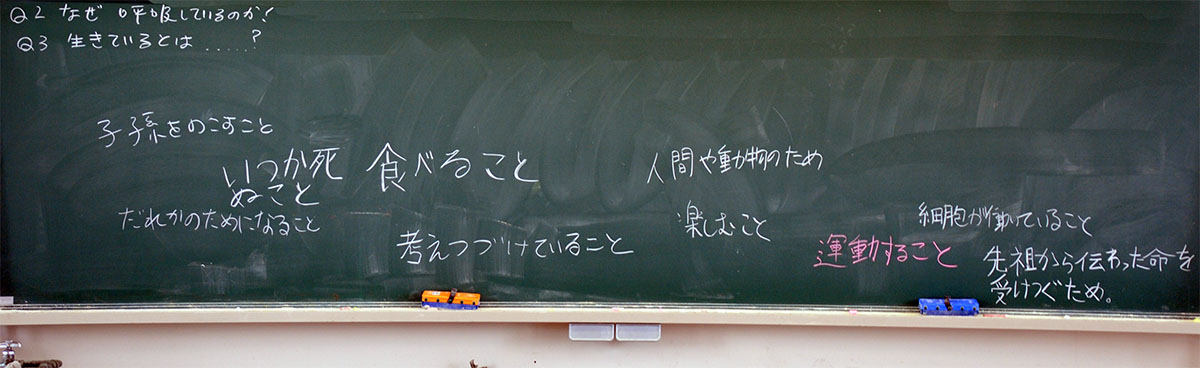 Q2 なぜ呼吸しているのか!
Q3 生きているとは.....?
子孫をのこすこと
いつか死
ぬこと
食べること
だれかのためになること
考えつづけていること
人間や動物のため
楽しむこと
運動すること
細胞が働いていること
先祖から伝わった命を
受けつぐため。